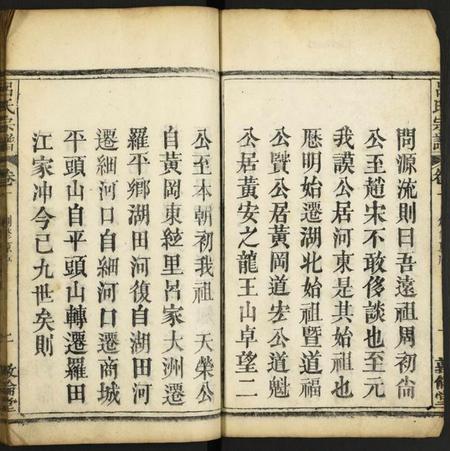 呂氏宗譜
卷一
一
敦倫堂
問源流則曰吾遠祖周初尙
公至趙宋不敢侈談也至元
我謨公居河東是其始祖也
歷明始遷湖北始祖暨道福
公賢公居黃岡道宏公道魁
公居黃安之龍王山卓望二
公至本朝初我祖 天榮公
自黃岡東絃里呂家大洲遷
羅平鄉湖田河復自湖田河
遷細河口自細河口遷商城
平頭山自平頭山轉遷羅田
江家冲今已九世矣則
呂氏宗譜
卷一
二
敦倫堂